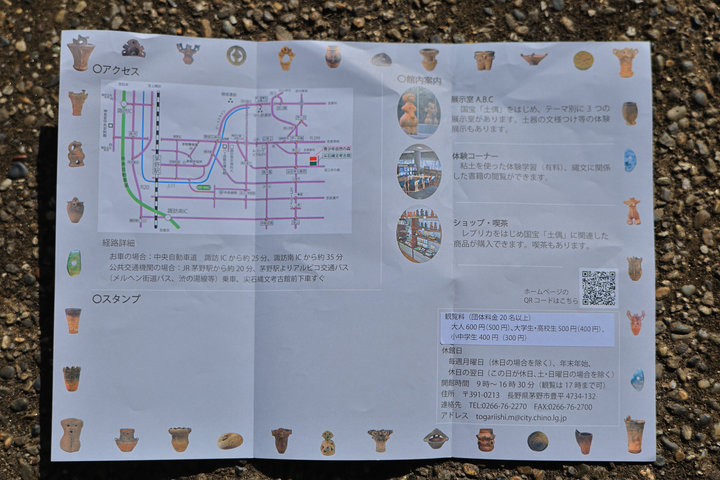 〇アクセス
諏訪南IC
尖石縄文考古館
経路詳細
お車の場合：中央自動車道　諏訪ICから約25分、諏訪南ICから約35分
公共交通機関の場合：JR茅野駅から約20分、茅野駅よりアルピコ交通バス
（メルヘン街道バス、渋の湯線等）乗車、尖石縄文考古館前下車すぐ
〇スタンプ
〇館内案内
展示室 A.B.C
国宝「土偶」をはじめ、テーマ別に３つの
展示室があります。土器の文様つけ等の体験
展示もあります。
体験コーナー
粘土を使った体験学習（有料）、縄文に関係
した書籍の閲覧ができます。
ショップ・喫茶
レプリカをはじめ国宝「土偶」に関連した
商品が購入できます。喫茶もあります。
ホームページの
QRコードはこちら
観覧料（団体料金20名以上）
大人600円（500円）、大学生・高校生500円（400円）、
小中学生400円（300円）
休館日
毎週月曜日（休日の場合を除く）、年末年始、
休日の翌日（この日が休日、土・日曜日の場合を除く）
開館時間　9時～16時30分（観覧は17時まで可）
住所　〒391-0213　長野県茅野市豊平4734-132
連絡先　TEL:0266-76-2270　FAX:0266-76-2700
アドレス　togariishi.m@city.chino.lg.jp